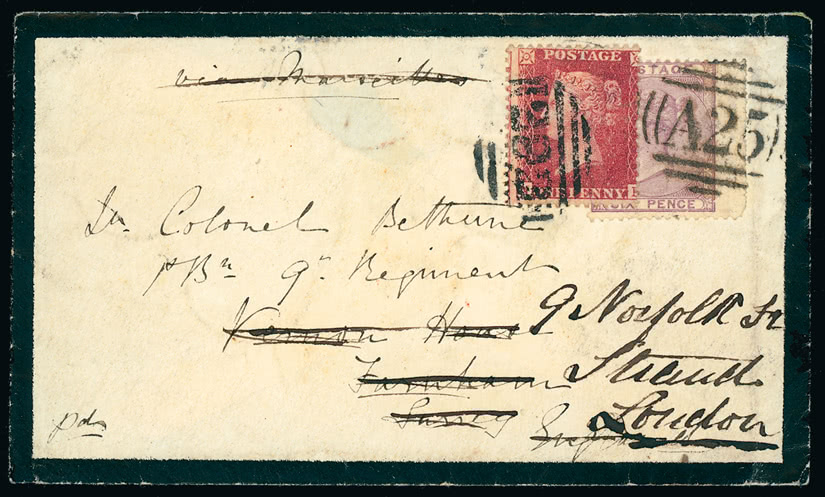 via Marseilles
POSTAGE
PENNY
SIX PENCE
A25
Lt. Colonel Bethune
1st Bn 9th Regiment
Vernon House
Farnham
Surrey
9 Norfolk St
Strand
London
pd